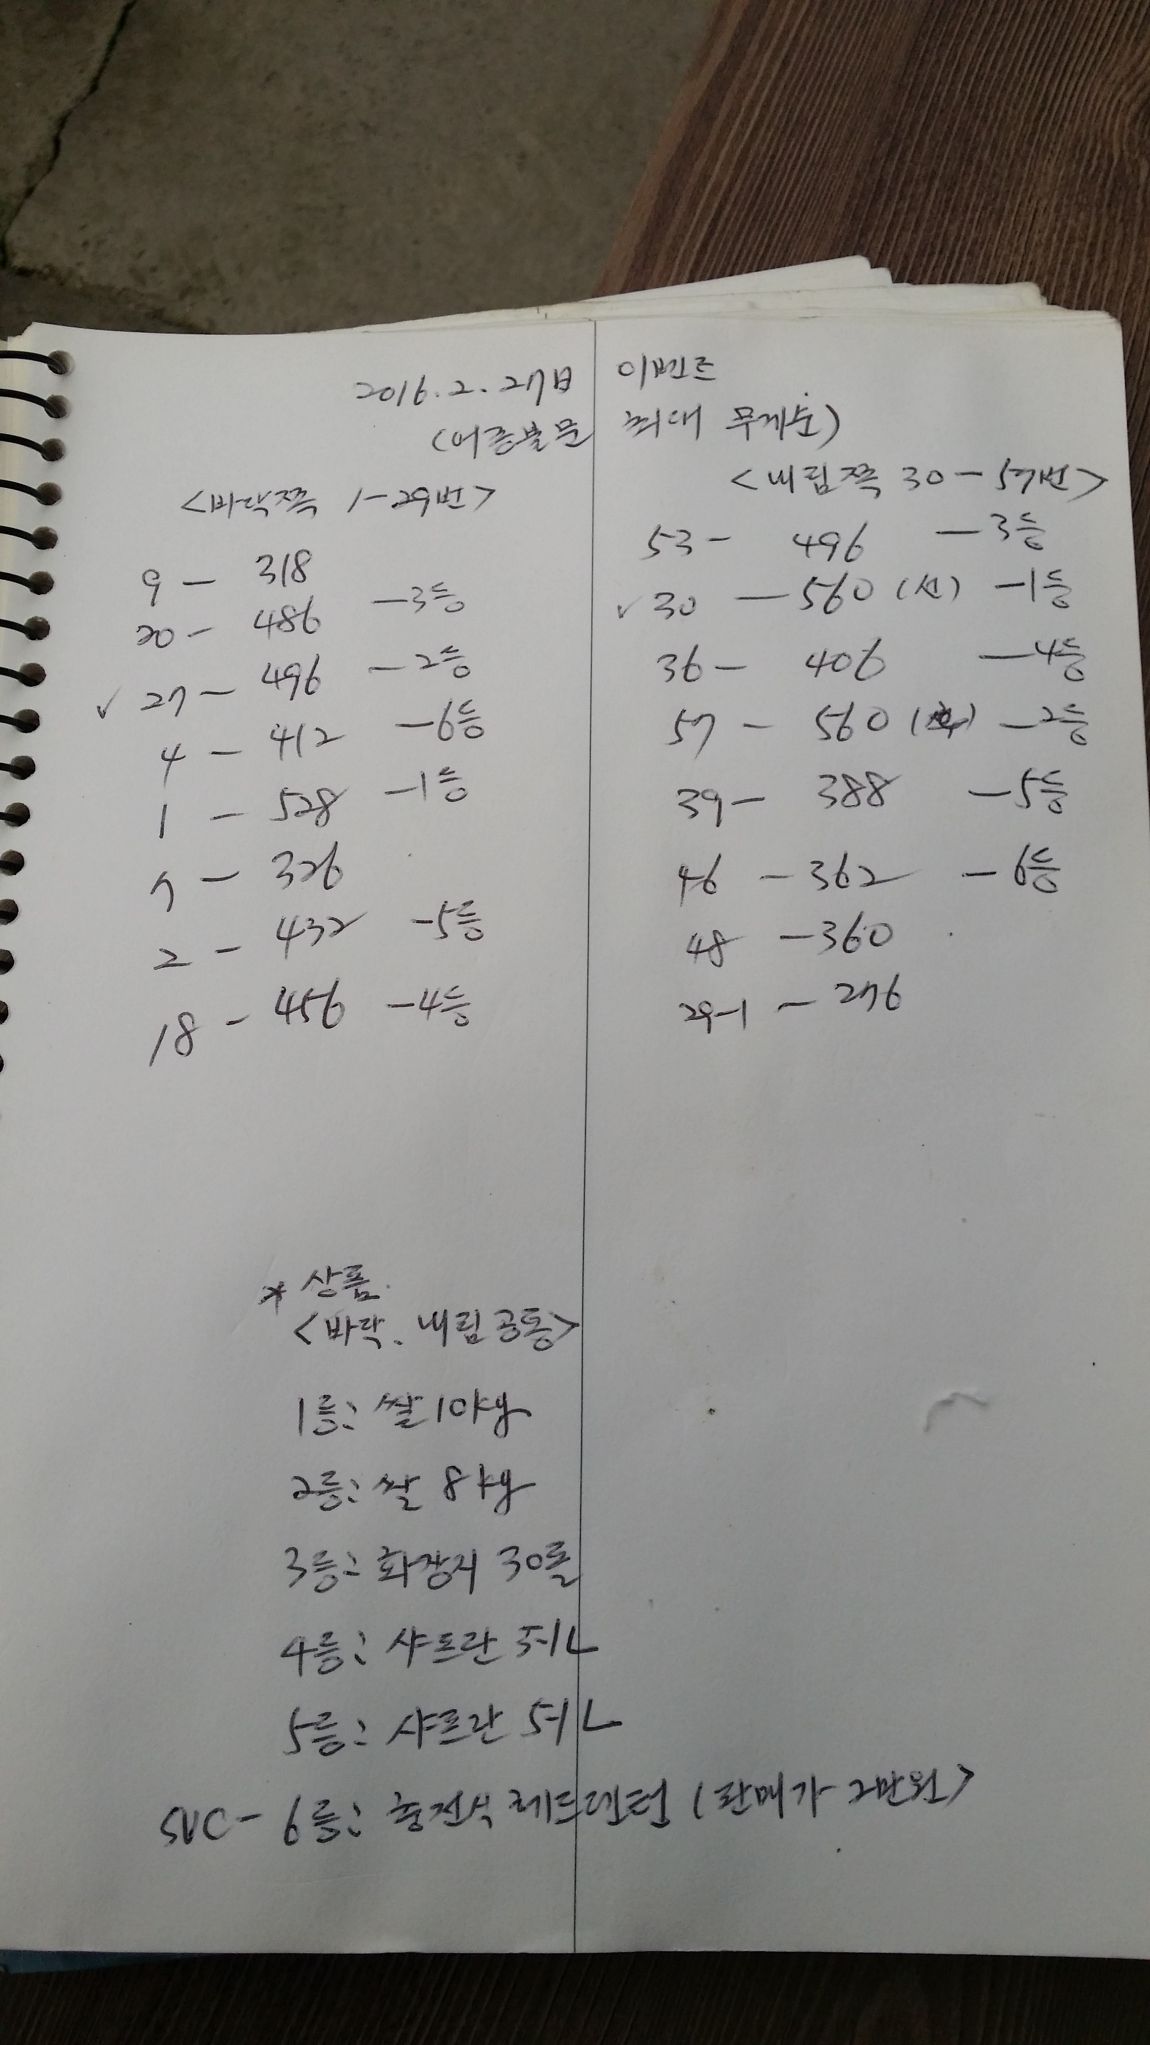 2016.2.27日 이벤트
(어종불문 최대 무게순)
<바닥쪽 1-29번>
9 - 318
20 - 486 - 3등
✓ 27 - 496 - 2등
4 - 412 - 6등
1 - 528 - 1등
7 - 326
2 - 432 - 5등
18 - 456 - 4등
<내림쪽 30-57번>
53 - 496 - 3등
✓ 30 - 560 (선) - 1등
36 - 406 - 4등
57 - 560 - 2등
39 - 388 - 5등
46 - 362 - 6등
48 - 360
29-1 - 276
* 상품.
<바닥. 내림 공통>
1등: 쌀 10kg
2등: 쌀 8kg
3등: 화장지 30롤
4등: 샤프란 5-1L
5등: 샤프란 5-1L
SVC- 6등: 충전식 헤드덴턴 (판매가 2만원>